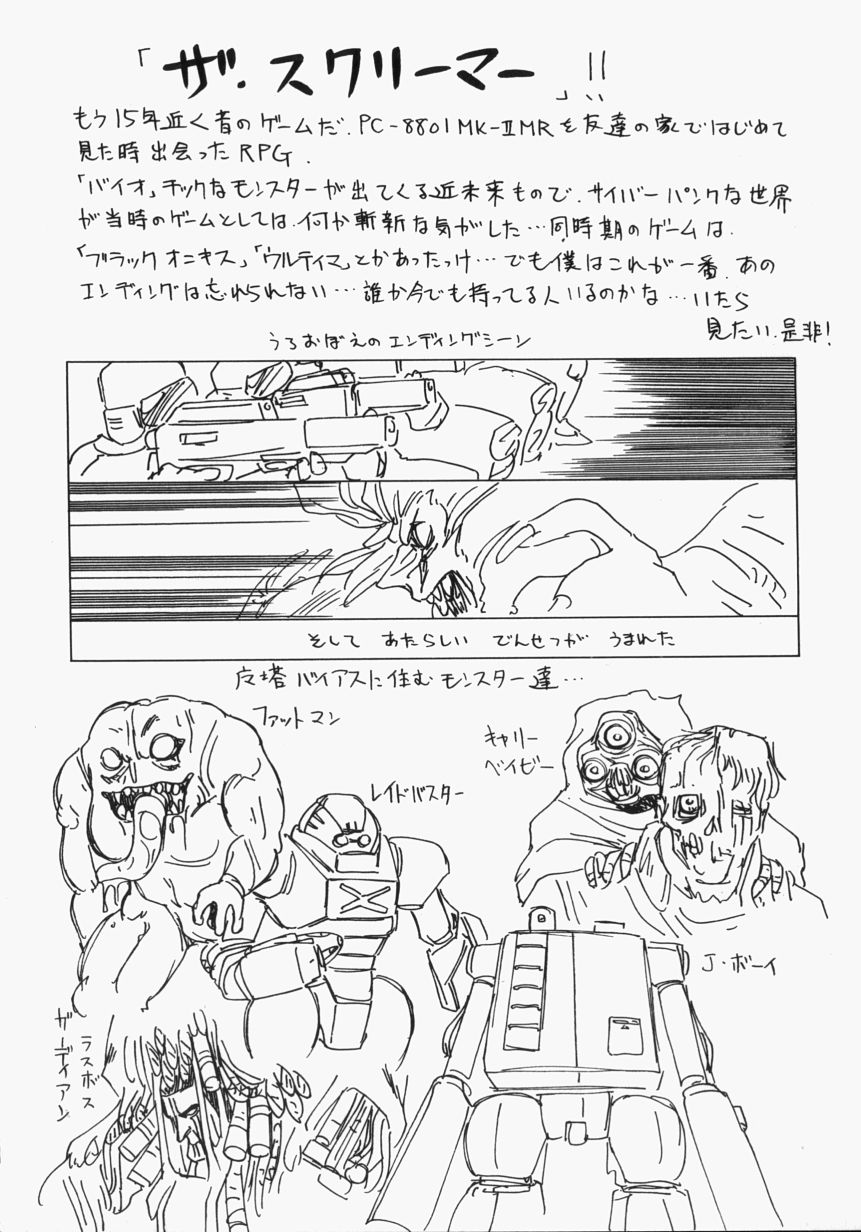 「ザ・スクリーマー」!!
もう15年近く昔のゲームだ.PC-8801MK-ⅡMRを友達の家ではじめて
見た時出会ったRPG.
「バイオ」チックなモンスターが出てくる近未来もので、サイバーパンクな世界
が当時のゲームとしては、何か斬新な気がした…同時期のゲームは、
「ブラックオニキス」「ウルティマ」とかあったっけ…でも僕はこれが一番.あの
エンディングは忘れられない…誰か今でも持ってる人いるのかな…いたら
見たい.是非!
うろおぼえのエンディングシーン
そして あたらしい でんせつが うまれた
反塔バイアスに住むモンスター達…
ファットマン
キャリー
ベイビー
レイドバスター
J・ボーイ
ラスボス
ガーディアン